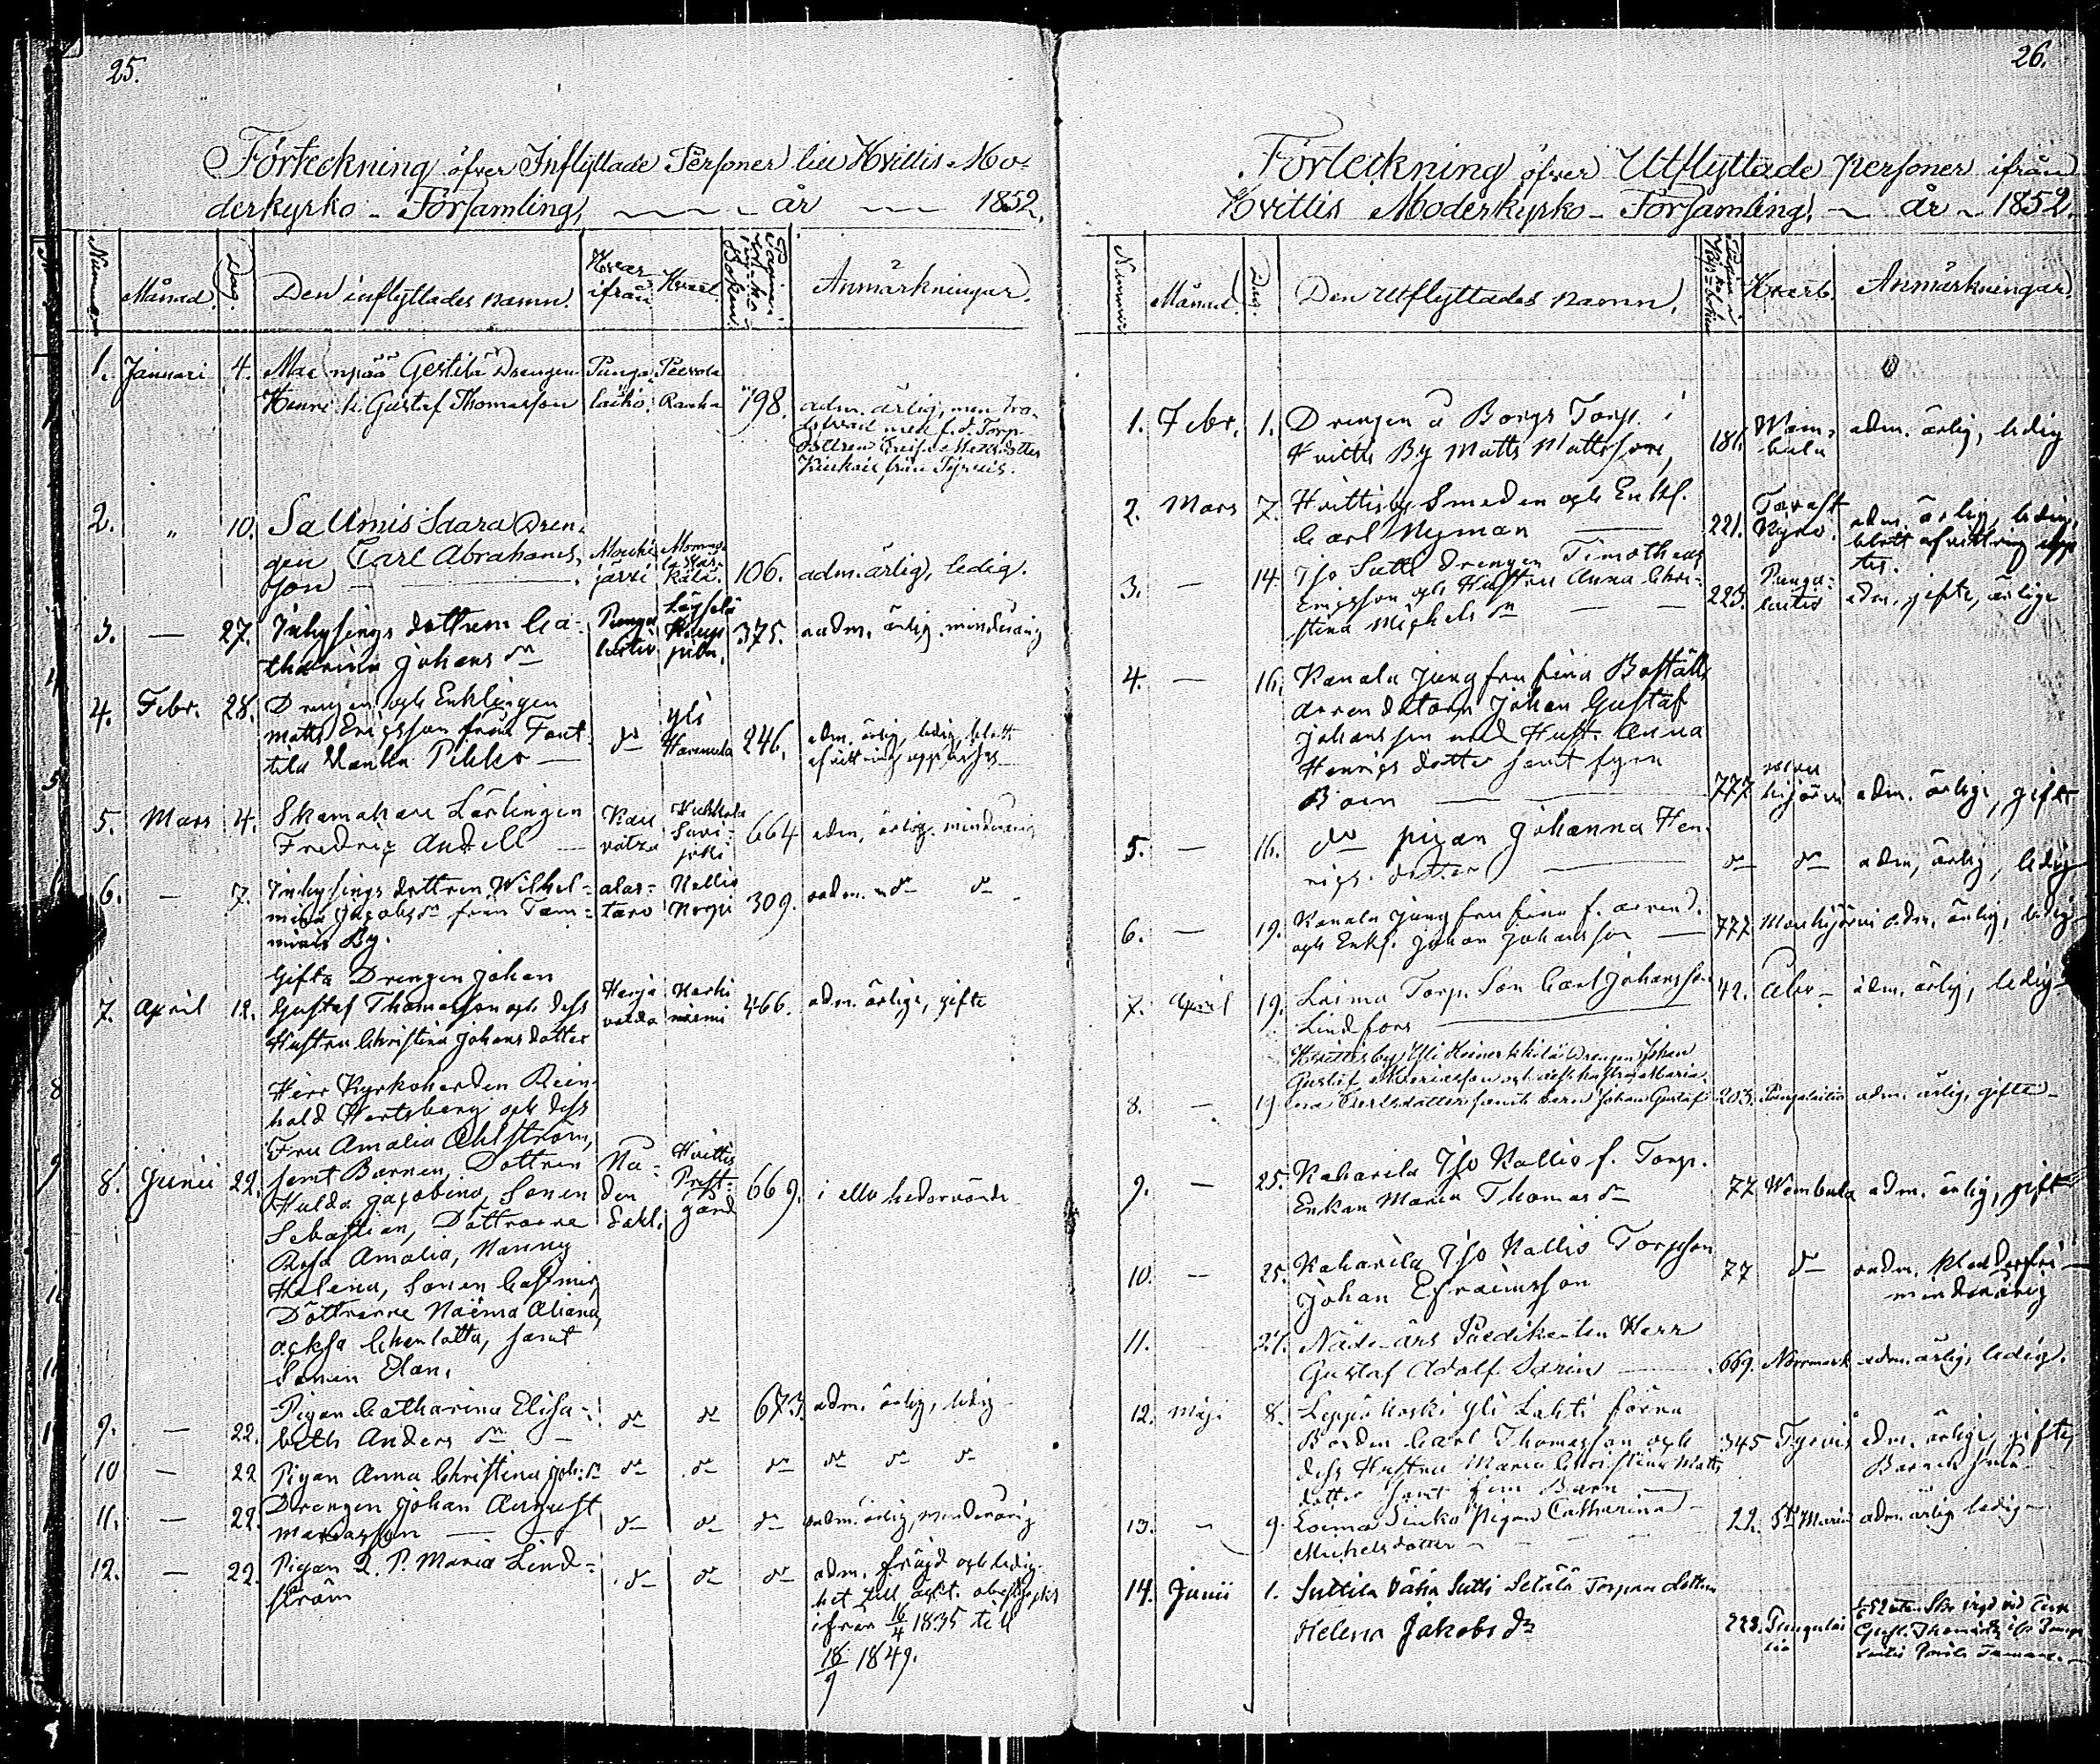 25.
Förteckning öfver Inflyttade Personer till Hvittis Mo-
derkyrko-Församling, år 1852.
Nummer
Månad.
Dag
Den inflyttades namn.
Hvar
ifrån
Hvart.
Pagina
i Kyrko-
Boken.
Anmärkningar.
1. Januari 4. Gertilä Drengen Punga-
Henric Gustaf Thomasson laitio. Ranka 198. adm. ärlig, men tro-
lofvad med f. d. Torp.
dottren
från
2. " 10. Sallmis Saara Dren-
gen Carl Abrahams-
son Mouhi-
järvi 106. adm. ärlig, ledig.
3. — 27. Inhysings dottren Ca-
tharina Johans dr Punga-
laitio 375. oadm. ärlig. minderårig
4. Febr. 28. Drengen och Enklingen
Matts Ericsson från
Pekko — do Yli
246. adm. ärlig, ledig, blott
afvittring uppvises
5. Mars 4. Skomakare Lärlingen
Fredric Andell — 664 adm. ärlig. minderårig
6. — 7. Inhysings dottren Wilhel-
mina Jacobs dr från Tam-
By. Alas-
taro 309. oadm. do do
7. April 12. Gifta Drengen Johan
Gustaf Thomasson och dess
Hustru Christina Johans dotter Harja-
valda 466. adm. ärlige, gifte
8. Junii 22. Herr Kyrkoherden Rein-
hold Hertzberg och dess
Fru Amalia Ahlström,
samt Barnen, Dottren
Hulda Jacobina, Sonen
Sebastian, Döttrarne
Rosa Amalia, Nanny
Helena, Sonen Casimir,
Döttrarne Naëma Aliana,
Charlotta, samt
Sonen Elan. Nå-
den-
dahl. Hvittis
Prest-
gård 669. i allo hedervärde
9. — 22. Pigan Catharina Elisa-
beth Anders dr do do 673. adm. ärlig, ledig
10 — 22 Pigan Anna Christina Joh: dr do do do do do do
11. — 22. Drengen Johan August
do do do oadm. ärlig, minderårig
12. — 22. Pigan Maria Lind-
ström do do do adm. fräjd och ledig-
het till äkt.
ifrån 16/4 1835 till
18/9 1849.
26.
Förteckning öfver Utflyttade Personer ifrån
Hvittis Moderkyrko-Församling. år 1852.
Nummer
Månad.
Dag.
Den Utflyttades namn.
Pagina i
Kyrko-boken
Hvart.
Anmärkningar.
1. Febr. 1. Drengen å Borgs Torp. i
Hvittis By Matts Mattsson, 186. adm. ärlig, ledig
2. Mars 7. Hvittisby Smeden och Enkl.
Carl Nyman 221. Tavast
Kyro. adm. ärlig, ledig,
blott afvittring upp
tes.
3. — 14. Iso Sutti Drengen Timotheus
Ericsson och Hustru Anna Chri-
stina Michels dr 223. Punga-
laitio adm. gifte, ärlige
4. — 16. Kanala Jungfru lina Boställs
Arrendatorn Johan Gustaf
Johansson med Hust. Anna
Henrics dotter samt fyra
Barn 777 adm. ärlige, gifte
5. — 16. do pigan Johanna Hen-
rics dotter do do adm, ärlig, ledig
6. — 19. Kanala Jungfru lina f. arrend.
och Enkl. Johan Johansson 777 Mouhijärvi adm. ärlig, ledig
7. April 19. Loima Torp. Son Carl Johansson
Lindfors 42. Åbo — adm. ärlig, ledig
8. — 19 Hvittisby Yli Drengen Johan
Gustaf och dess hustru Maria
Carlsdotter samt barn Johan Gustaf 203. Pungalaitio adm. ärlig, gifte
9. — 25. Kaharila Iso Kallio f. Torp.
Enkan Maria Thomas dr 77 Wambula adm. ärlig, gift
10. — 25. Kaharila Iso Kallio Torpson
Johan Efraimsson 77 do oadm. klanderfri
minderårig
11. 27. Nåde-års Predikanten Herr
Gustaf Adolf 669. Norrmark adm. ärlig, ledig.
12. Maji 8. Leppäkoski Yli Lahti förra
Bonden Carl Thomasson och
dess Hustru Maria Christina Matts
dotter samt fem Barn 345 Tyrvis adm. ärlige, gifte,
Barnen små
13. — 9. Loima Pigan Catharina
Michelsdotter 22. St Marie adm. ärlig ledig
14. Junii 1. Suttila Vähä Sutti Setälä Torpare dottren
Helena Jakobs dr 223. Pungalai-
tio